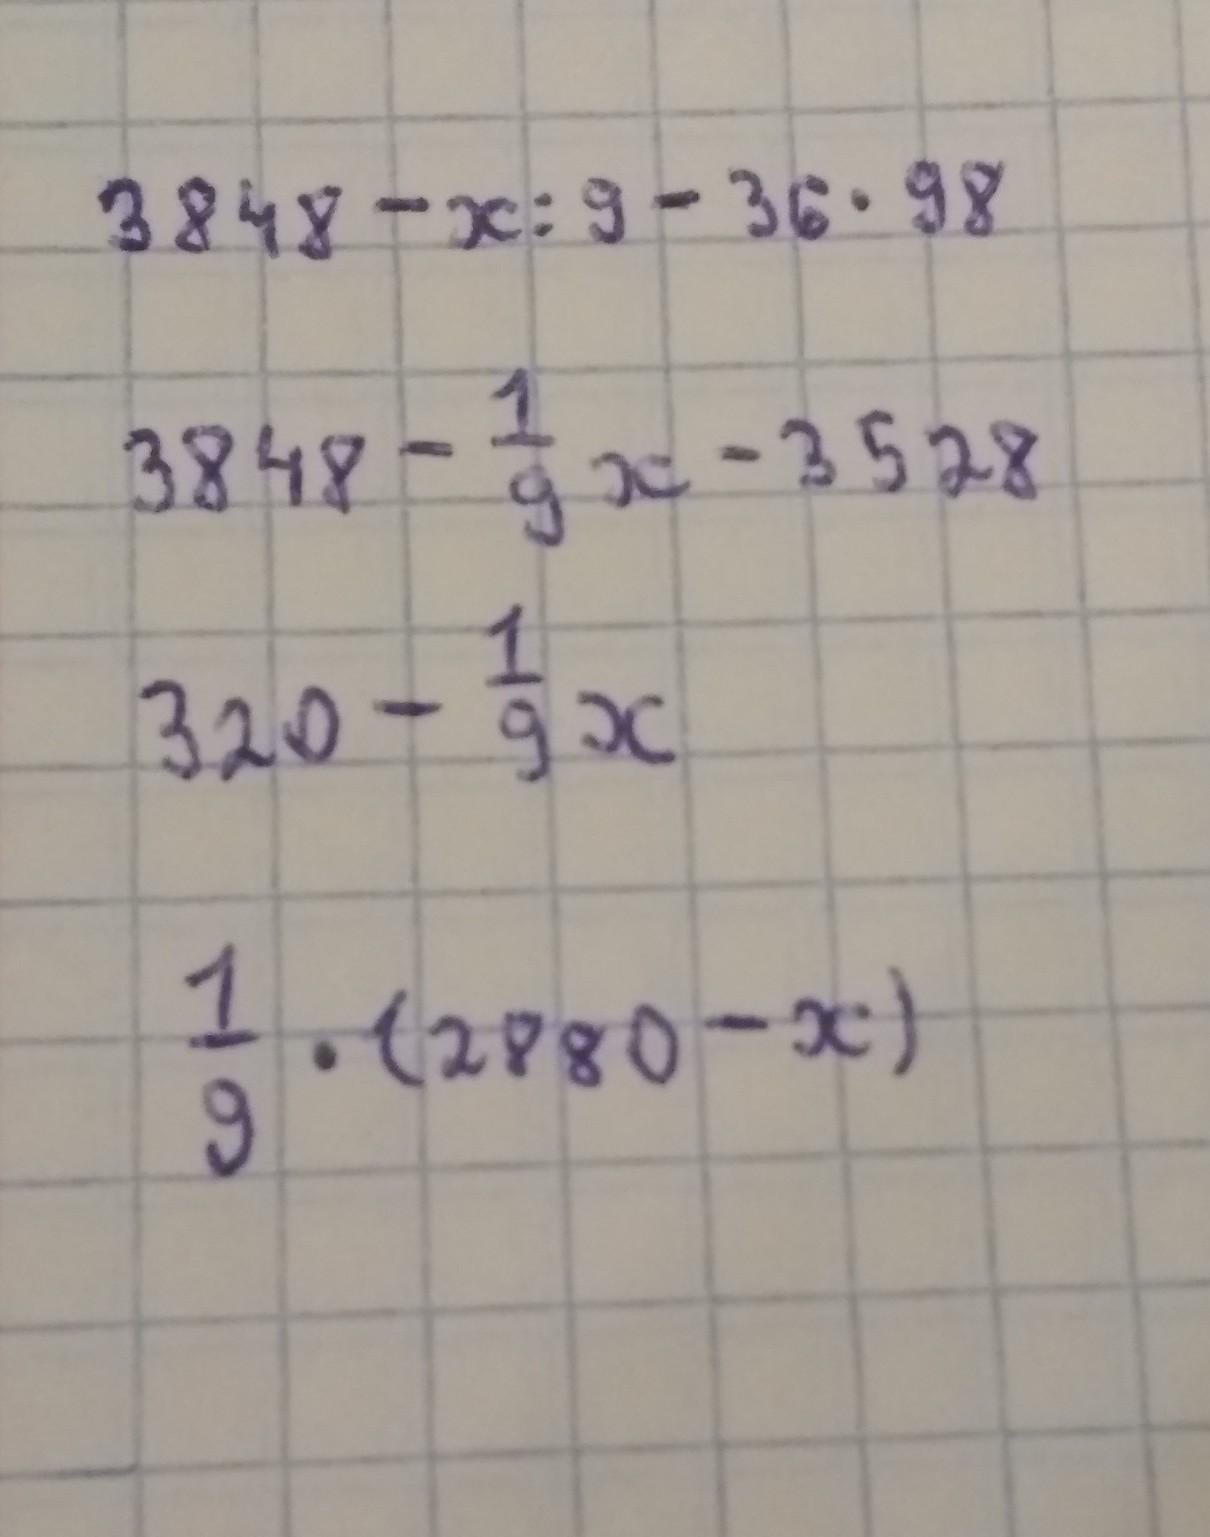 3848 - x : 9 - 36 · 98
3848 - 1/9 x - 3528
320 - 1/9 x
1/9 · (2880 - x)